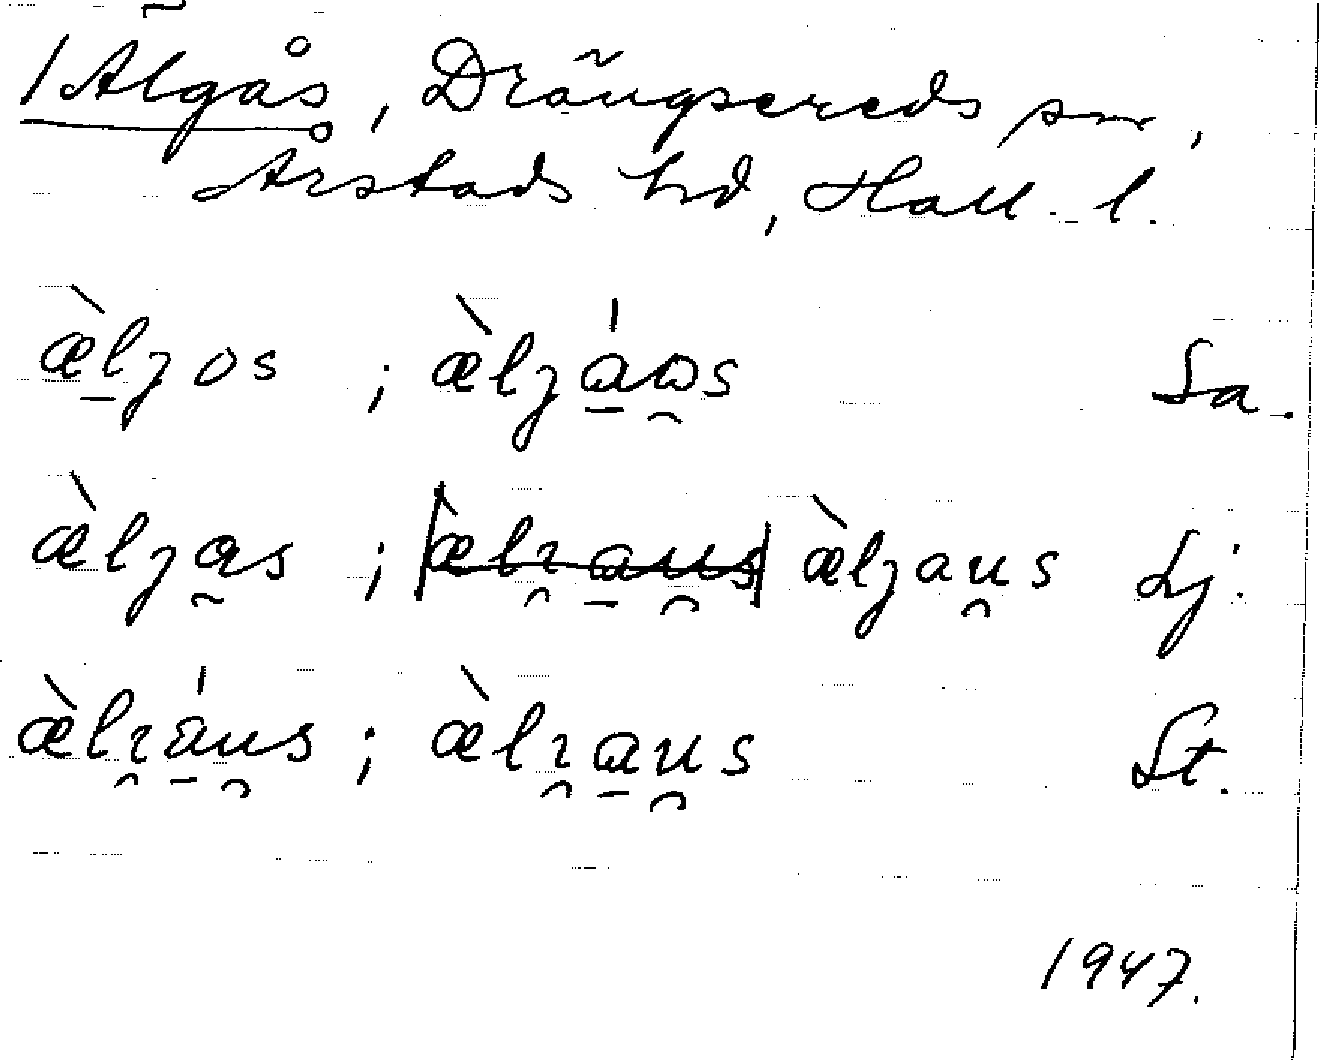 /Älgås, Drängsereds sn,
Årstads hd, Hall. l.
æ̀ljos ; æ̀ljáɷs Sa.
æ̀ljas ; æ̀ljaus Lj.
æ̀lɿáus ; æ̀lɿaus St.
1947.